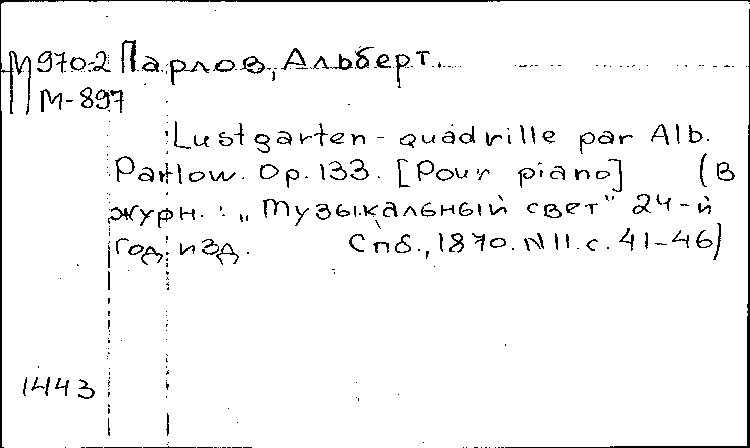 М970-2 Парлов, Альберт.
М-897
Lustgarten - quadrille par Alb.
Parlow. Op. 133. [Pour piano] (В
журн.: „Музыкальный свет" 24-й
год изд. Спб., 1870. N 11. с. 41-46)
1443